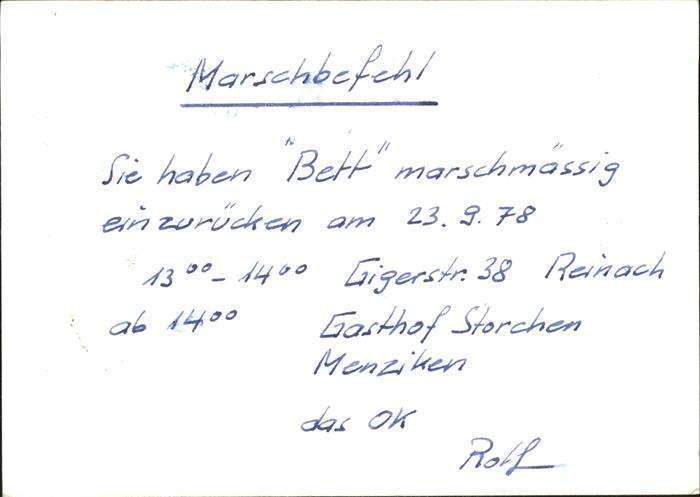 Marschbefehl
Sie haben "Bett" marschmässig
einzurücken am 23.9.78
13⁰⁰ - 14⁰⁰ Gigerstr. 38 Reinach
ab 14⁰⁰ Gasthof Storchen
Menziken
das OK
Rolf